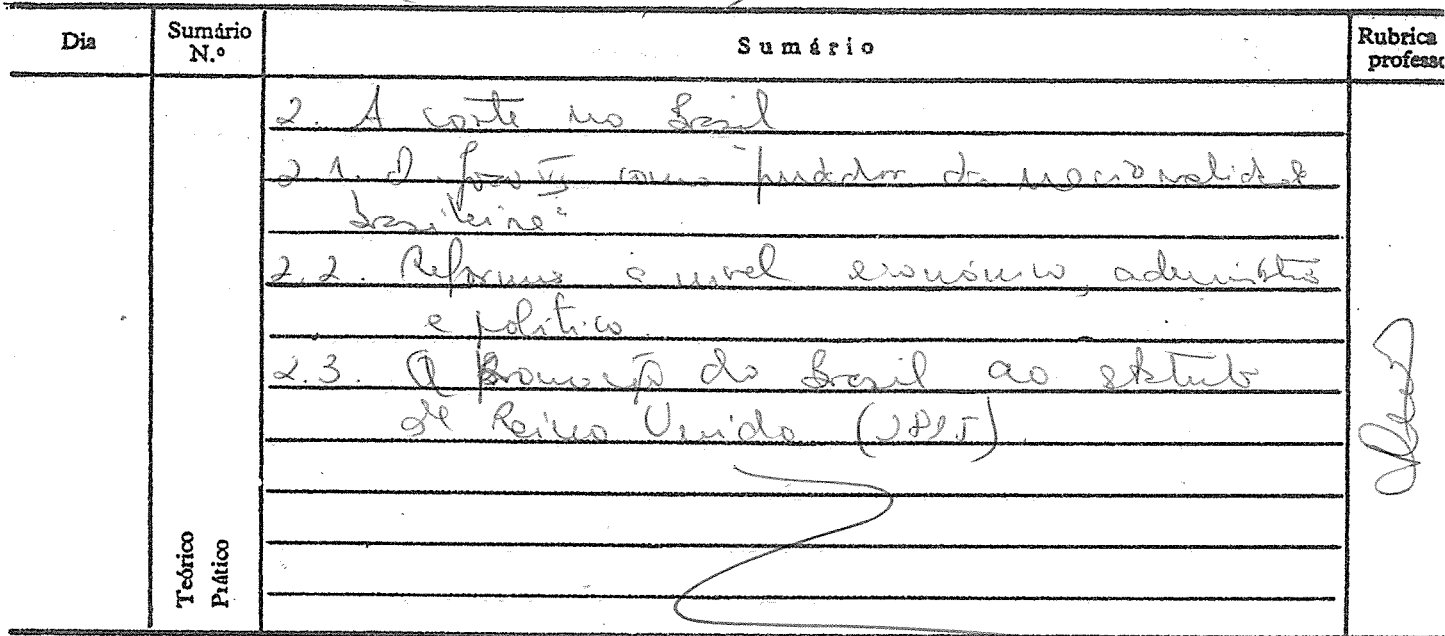 Dia
Sumário N.º
Sumário
Rubrica
professo
2. A corte no Brasil
2.1. D. João VI como "fundador da nacionalidade
brasileira"
2.2. Reformas a nível económico, administrativo
e político.
2.3. A promoção do Brasil ao estatuto
de Reino Unido (1815).
Teórico
Prático